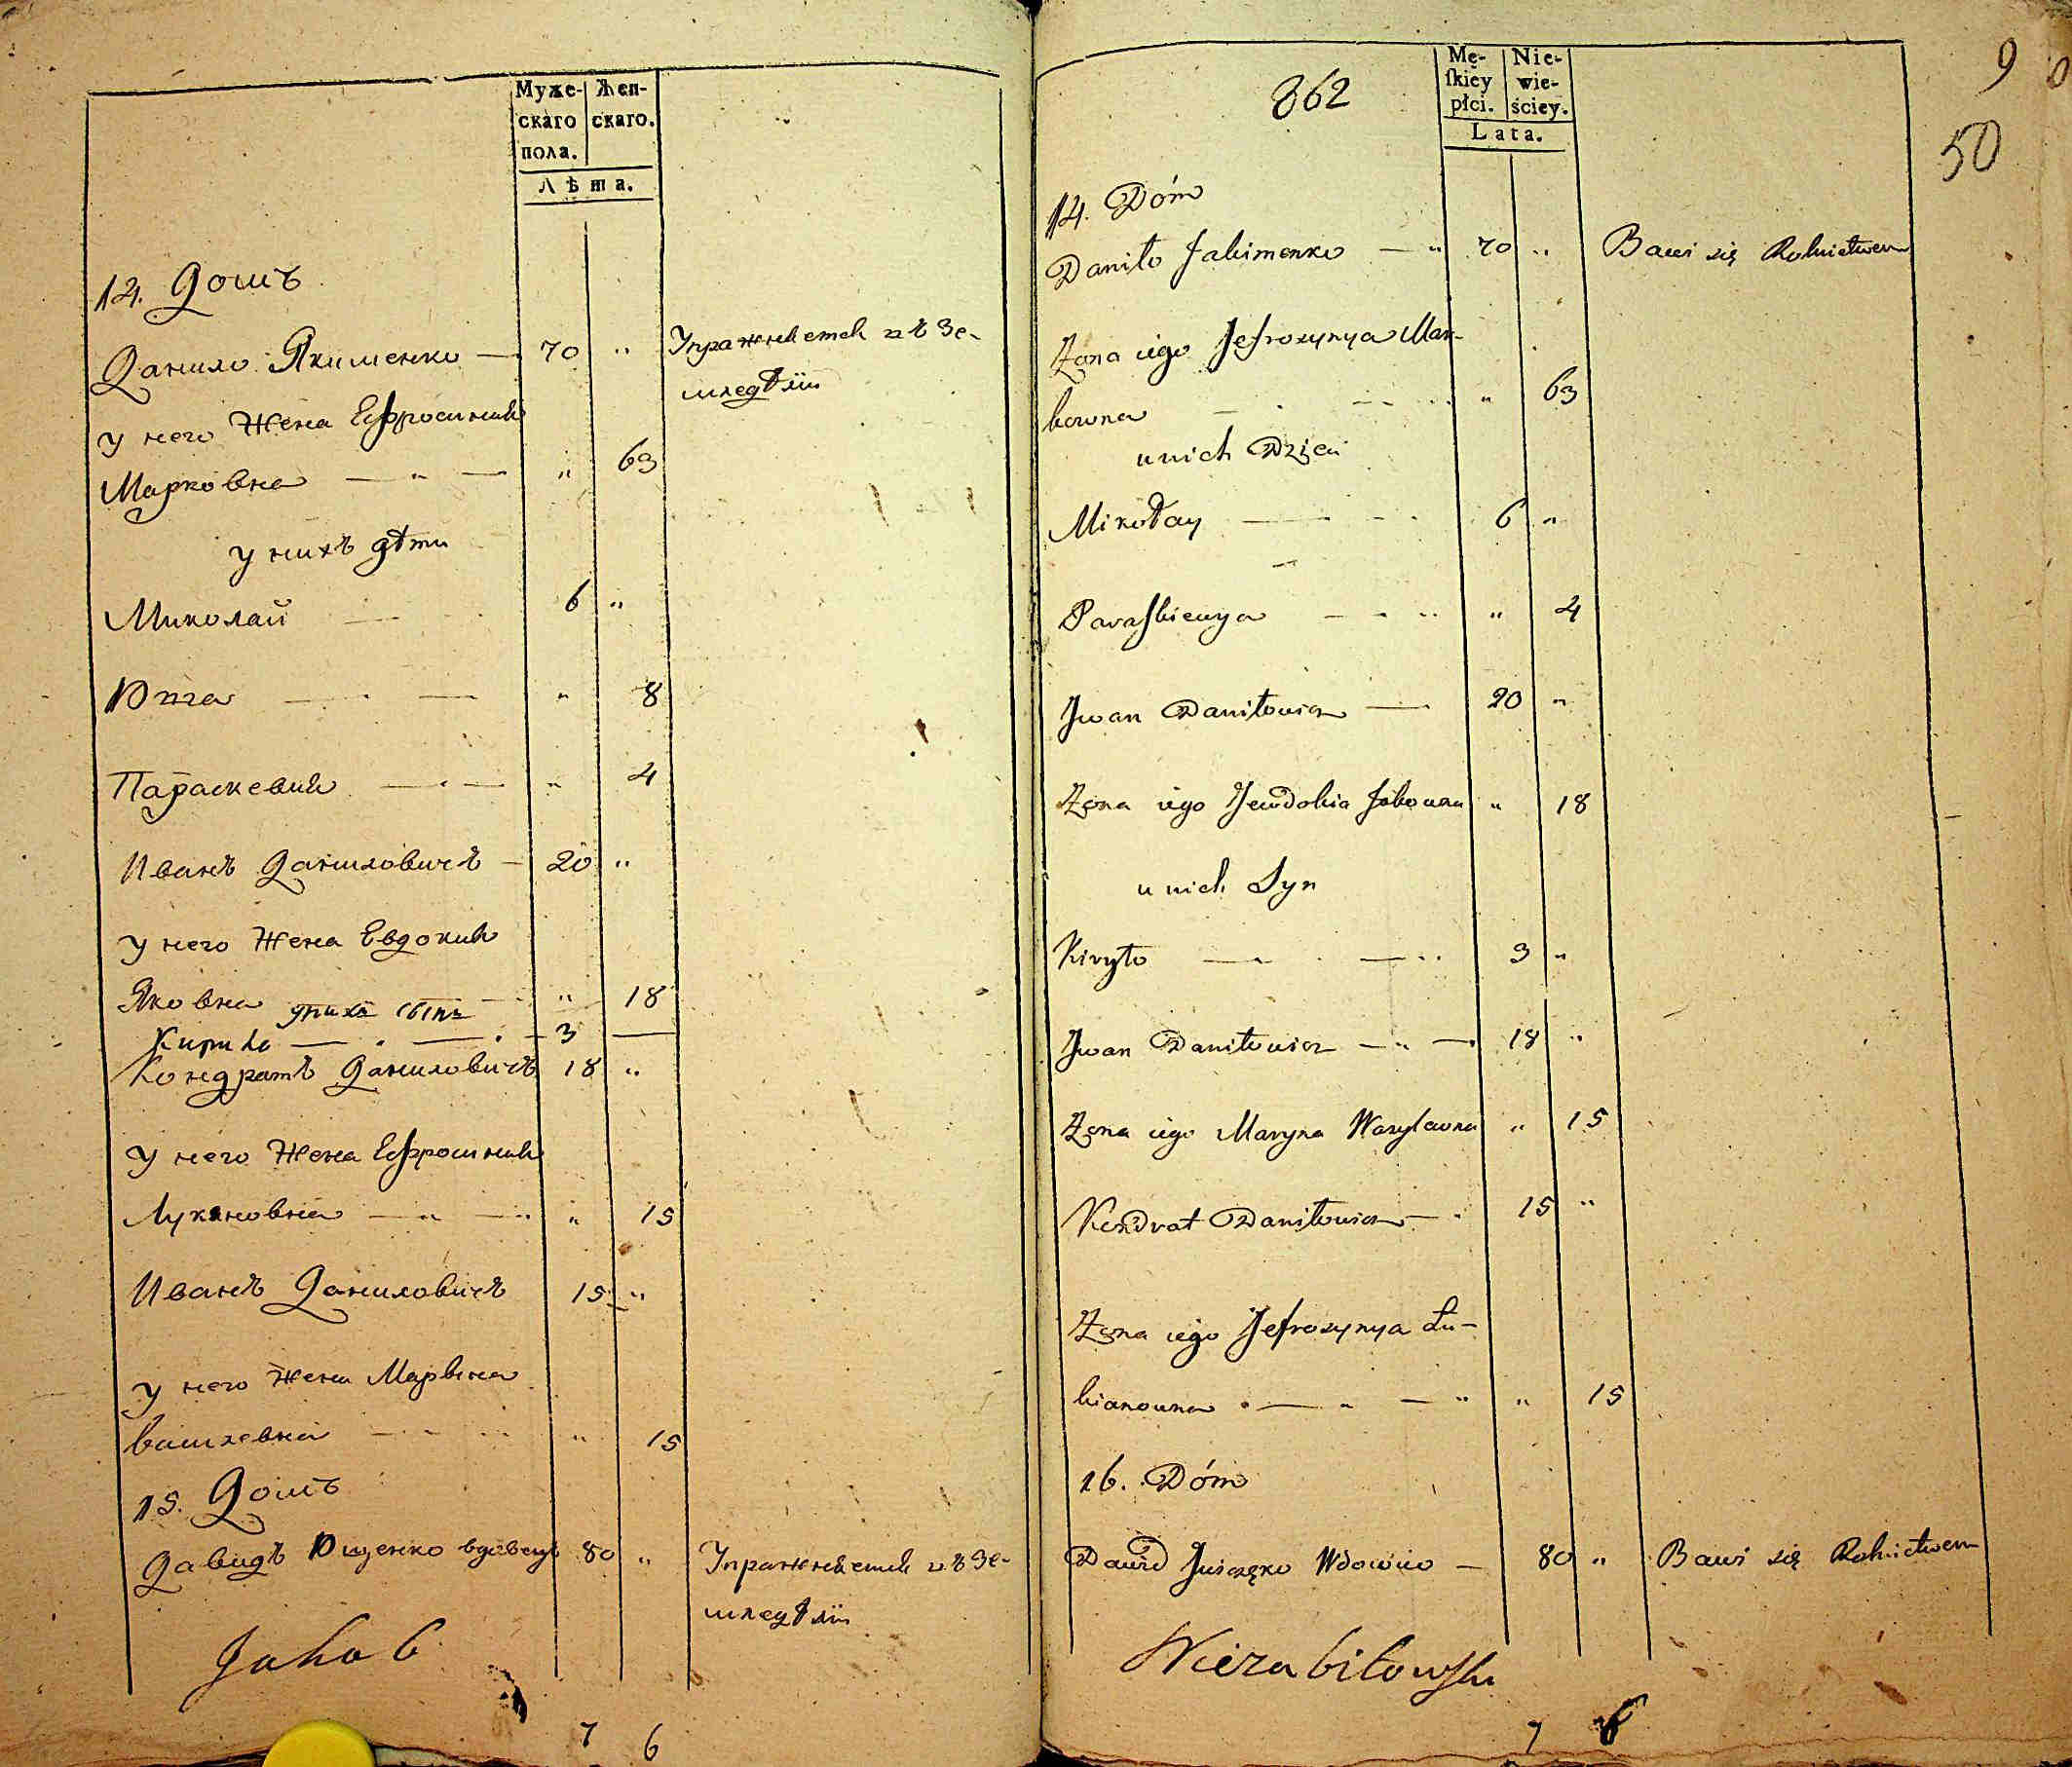 Муже-
скаго
пола.
Жен-
скаго.
Лѣта.
14. Домъ
Данило Якименко — 70 "
Упражняется въ Зе-
мледѣліи
у него Жена Ефросиния
Марковна — " — " 63
у нихъ дѣти
Миколай 6 "
Юпга — — " 8
Параскевия — — " 4
Иванъ Даниловичъ — 20 "
у него Жена Евдокия
Яковна — " 18
у нихъ сынъ
Кирило — — 3 —
Кондратъ Даниловичъ 18 "
у него Жена Ефросиния
Лукяновна — " — " 15
Иванъ Даниловичъ 15 "
у него Жена Марвина
Василевна " 15
15. Домъ
Давидъ Ющенко вдовецъ 80 "
Упражняется въ Зе-
мледѣліи
Jakob
7 6
862
Mę-
skiey
płci.
Nie-
wie-
ściey.
Lata.
9
50
14. Dóm
Daniło Jakimenko — " 70 " Bawi się Rolnictwem
Żona iego Jefrozynya Mar-
kowna — " 63
u nich Dzieci
Mikołay — 6 "
Paraskiewya — " 4
Jwan Daniłowicz — 20 "
Żona iego Jewdokia Jakowna " 18
u nich Syn
Kiryło — — 3 "
Jwan Daniłowicz — " — 18 "
Żona iego Maryna Wasylewna " 15
Kondrat Daniłowicz — 15 "
Żona iego Jefrozynya Łu-
kianowna — " — " " 15
16. Dóm
Dawid Juszczęko Wdowiec — 80 " Bawi się Rolnictwem
Niezabitowski
7 6